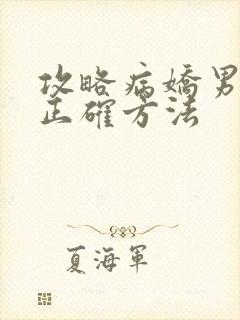 攻略病嬌男
正確方法
夏海軍